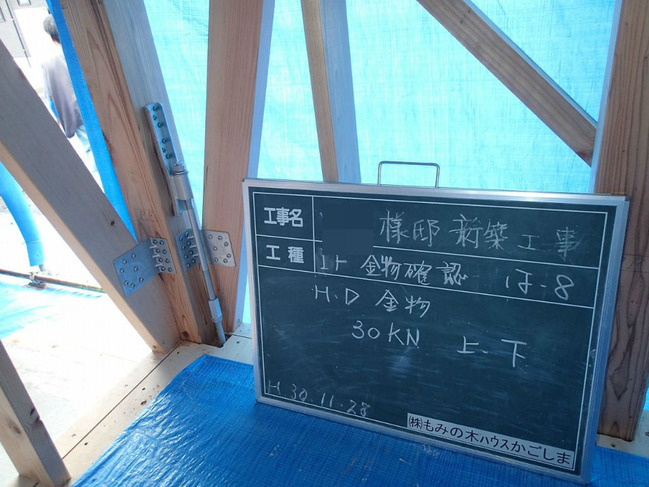 工事名 様邸 新築工事
工種 1F 金物確認 は-8
H.D 金物
30KN 上、下
H.30.11.28
㈱もみの木ハウスかごしま